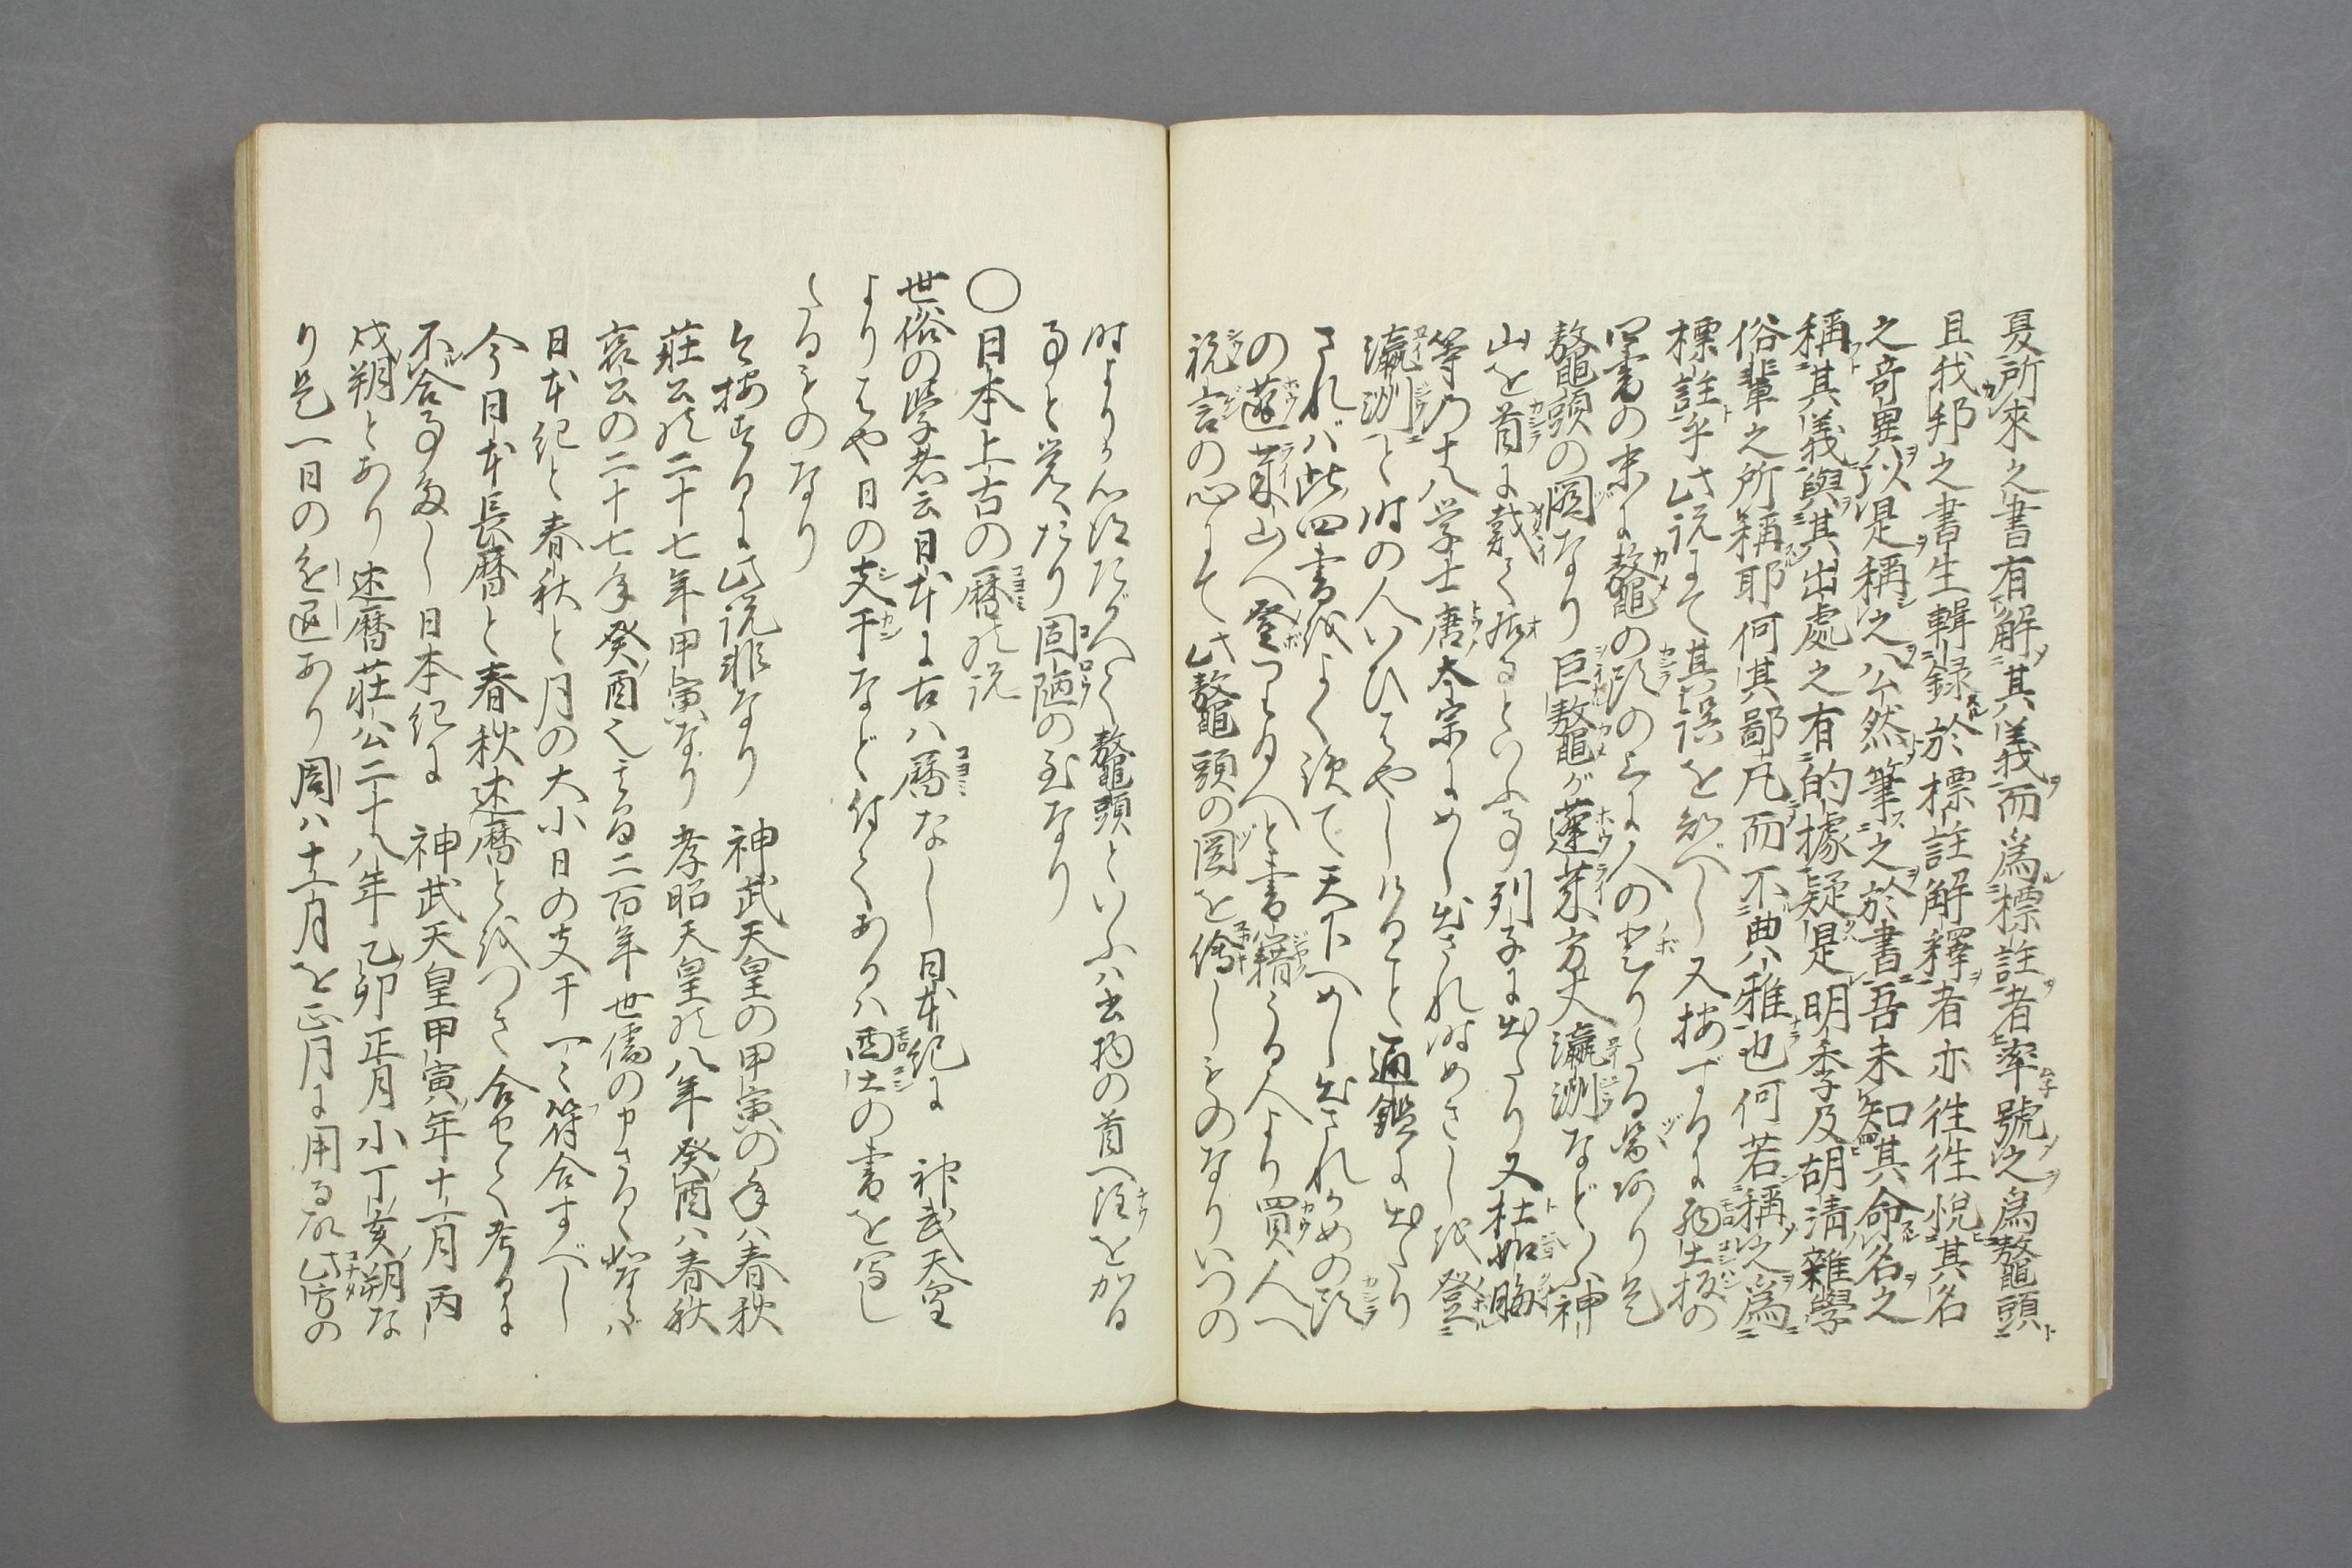 夏所來之書有解其義而爲標註者率號之爲鼇頭
且我邦之書生輯録於標註解釋者亦徃徃悦其名
之奇異以是稱之公然筆之於書吾未知其命名之
稱其義與其出處之有的據疑是明季及胡清雜學
俗輩之所稱耶何其鄙凡而不典雅也何若稱之爲
標註乎此説にて其誤を知べし又按ずるに唐土板の
四書の末に鼇の頭の上に人の登りたる圖あり是
鼇頭の圖なり巨鼇が蓬莱方丈瀛洲などいふ神
山を首に戴て居るといふ事列子に出たり又杜如晦
等の十八学士唐太宗にめし出されぬめさしを登
瀛洲と時の人いひはやしけること通鑑に出たり
されバ此四書をよく讀て天下へめし出されかめの頭
の蓬莱山へ登つり給へと書籍うる人より買人へ
祝言の心にて此鼇頭の圖を繪しものなりいつの
時よりか心得たがへて鼇頭といふハ書物の首へ注を加る
事と覚へたり固陋の至なり
○日本上古の暦の説
世俗の学者云日本に古ハ暦なし日本紀に 神武天皇
よりはや日の支干など付てあるハ西土の書を写し
たるものなり
今按ずるに此説非なり 神武天皇の甲寅の年ハ春秋
莊公の二十七年甲寅なり 孝昭天皇の八年癸酉ハ春秋
哀公の二十七年癸酉也その間二百年世儒の申さるゝ如ならバ
日本紀と春秋と月の大小日の支干一々符合すべし
今日本長暦と春秋述暦とをつき合せて考るに
不合る事多し日本紀に 神武天皇甲寅年十一月丙
戌朔とあり述暦莊公二十八年乙卯正月小丁亥朔な
り是一日の進退あり周ハ十一月を正月に用る故此方の